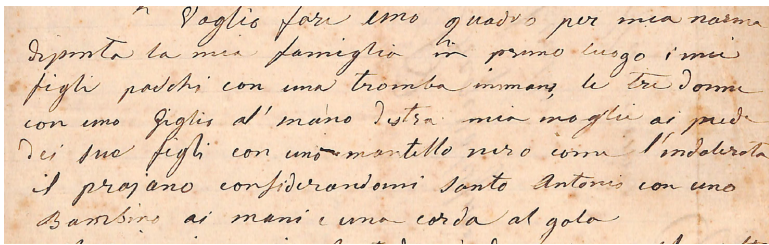 Voglio fare uno quadro per mia norma
dipinta la mia famiglia in primo luogo i miei
figli padchi con una tromba inmani, le tre donne
con uno Giglio al' mano destra mia moglie ai piede
dei sue figli con uno mantello nero come l'indolerata
il prajano considerandomi Santo Antonio con uno
Bambino ai mani e una corda al gola